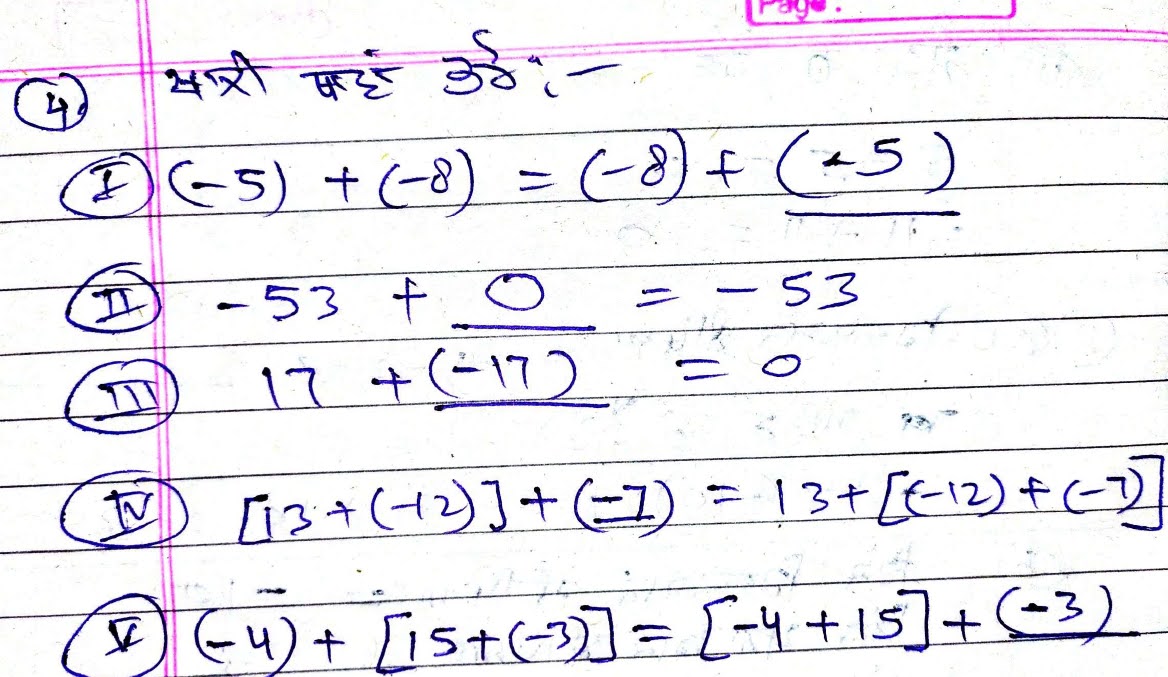 Page.
4. खाली जगह भरें :-
I (-5) + (-8) = (-8) + (-5)
II -53 + 0 = -53
III 17 + (-17) = 0
IV [13 + (-12)] + (-7) = 13 + [(-12) + (-7)]
V (-4) + [15 + (-3)] = [-4 + 15] + (-3)